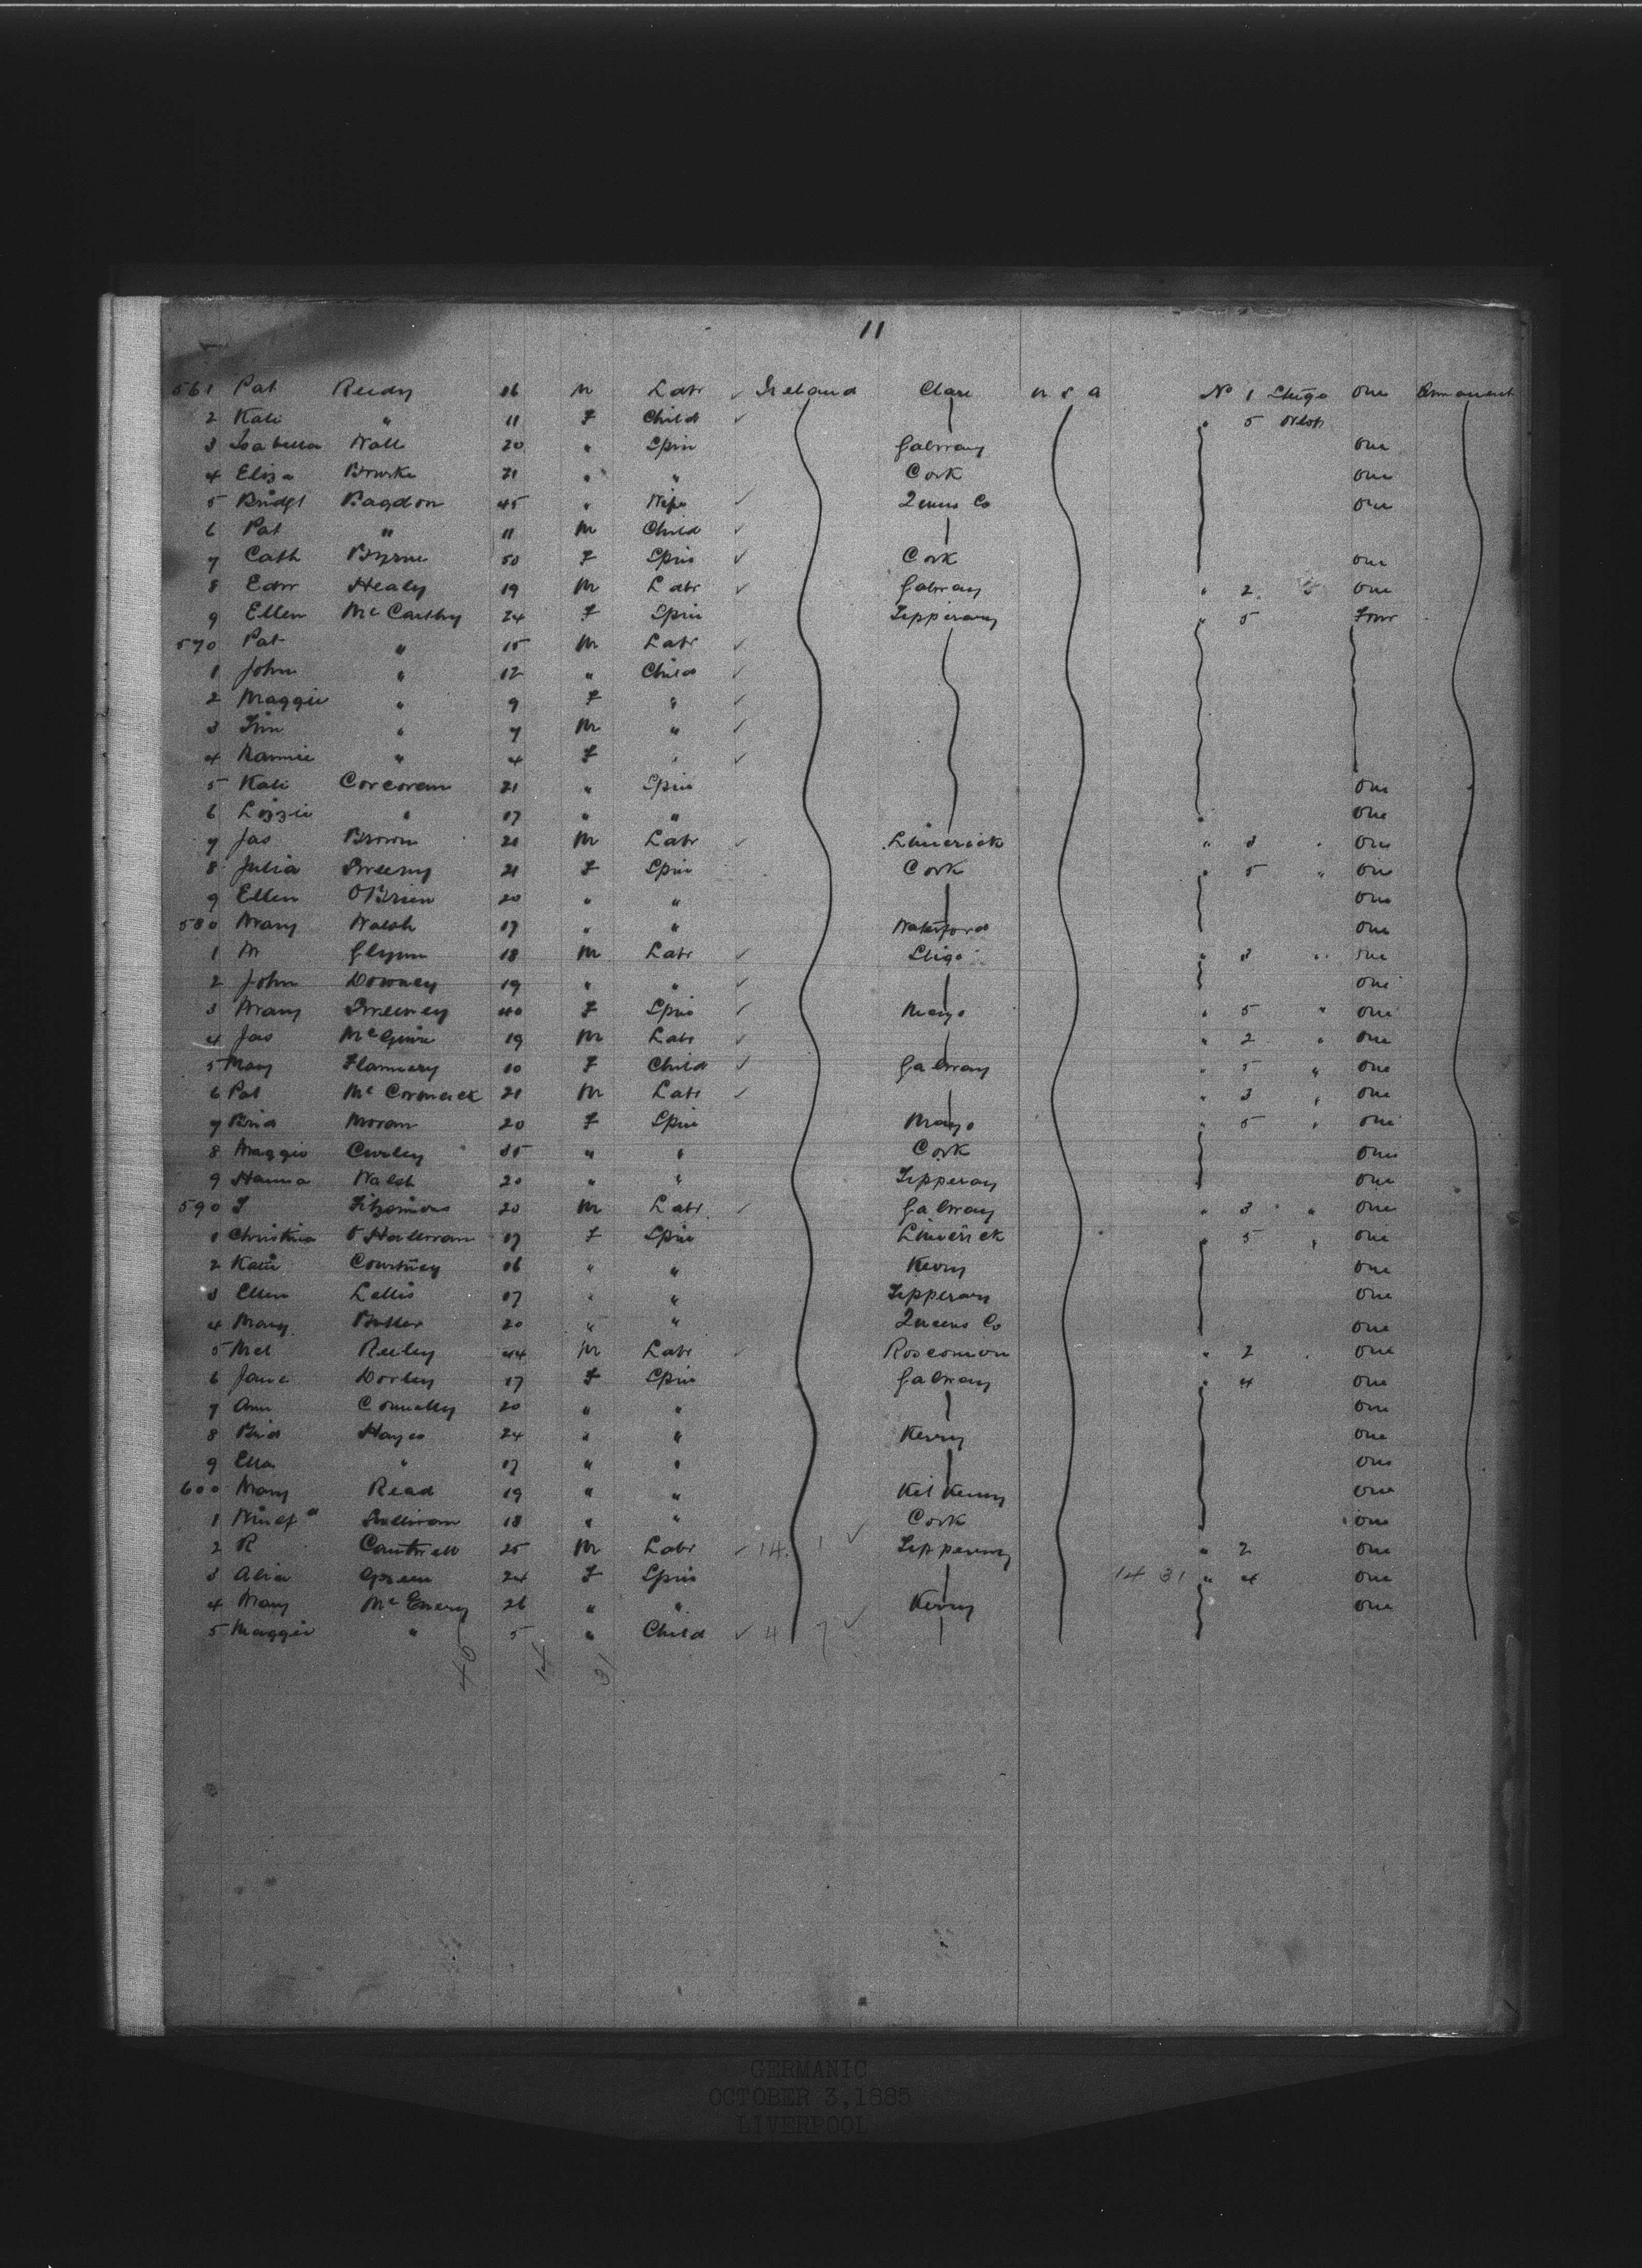 11
561 Pat Reidy 16 M Labr ✓ Ireland Clare U S A No 1 Stige One Permanent
2 Kate " 11 F Child ✓ " 5
3 Isabella Wall 20 " Spin Galway One
4 Eliza Bourke 21 " " Cork One
5 Bridgt Bagdon 45 " Wife ✓ Queens Co One
6 Pat " 11 M Child ✓
7 Cath Byrne 50 F Spin ✓ Cork One
8 Edw Healy 19 M Labr ✓ Galway " 2 One
9 Ellen McCarthy 24 F Spin Tipperary " 5 Four
570 Pat " 15 M Labr ✓
1 John " 12 " Child ✓
2 Maggie " 9 F " ✓
3 Tim " 7 M " ✓
4 Nannie " 4 F " ✓
5 Kate Corcoran 21 " Spin One
6 Lizzie " 17 " " One
7 Jas Brown 21 M Labr ✓ Limerick " 3 " One
8 Julia Sweeny 21 F Spin Cork " 5 " One
9 Ellen OBrien 20 " " One
580 Mary Walsh 17 " " Waterford One
1 M Glynn 18 M Labr ✓ Sligo " 3 " One
2 John Downey 19 " " ✓ One
3 Mary Sweeney 40 F Spin ✓ Mayo " 5 " One
4 Jas McGuire 19 M Labr ✓ " 2 " One
5 Mary Flannery 10 F Child ✓ Galway " 5 " One
6 Pat McCormick 21 M Labr ✓ " 3 " One
7 Brid Moran 20 F Spin Mayo " 5 " One
8 Maggie Curley 35 " " Cork One
9 Hanna Walsh 20 " " Tipperary One
590 T Fitzsimons 20 M Labr ✓ Galway " 3 " One
1 Christina O'Halloran 17 F Spin Limerick " 5 " One
2 Katie Courtney 16 " " Kerry One
3 Ellen Lellis 17 " " Tipperary One
4 Mary Butler 20 " " Queens Co One
5 Mcl Reiley 44 M Labr ✓ Roscomon " 2 " One
6 Jane Dorley 17 F Spin Galway " 4 One
7 Ann Connelly 20 " " One
8 Brid Hayes 24 " " Kerry One
9 Ellen " 17 " " One
600 Mary Read 19 " " Kilkenny One
1 Sullivan 18 " " Cork One
2 R Cantwell 25 M Labr ✓ 14 1 ✓ Tipperary " 2 One
3 Alice Green 24 F Spin 14 31 " 4 One
4 Mary McEnery 26 " " Kerry One
5 Maggie " 5 " Child ✓ 4 7 ✓
45 14 31
GERMANIC
OCTOBER 3,1885
LIVERPOOL